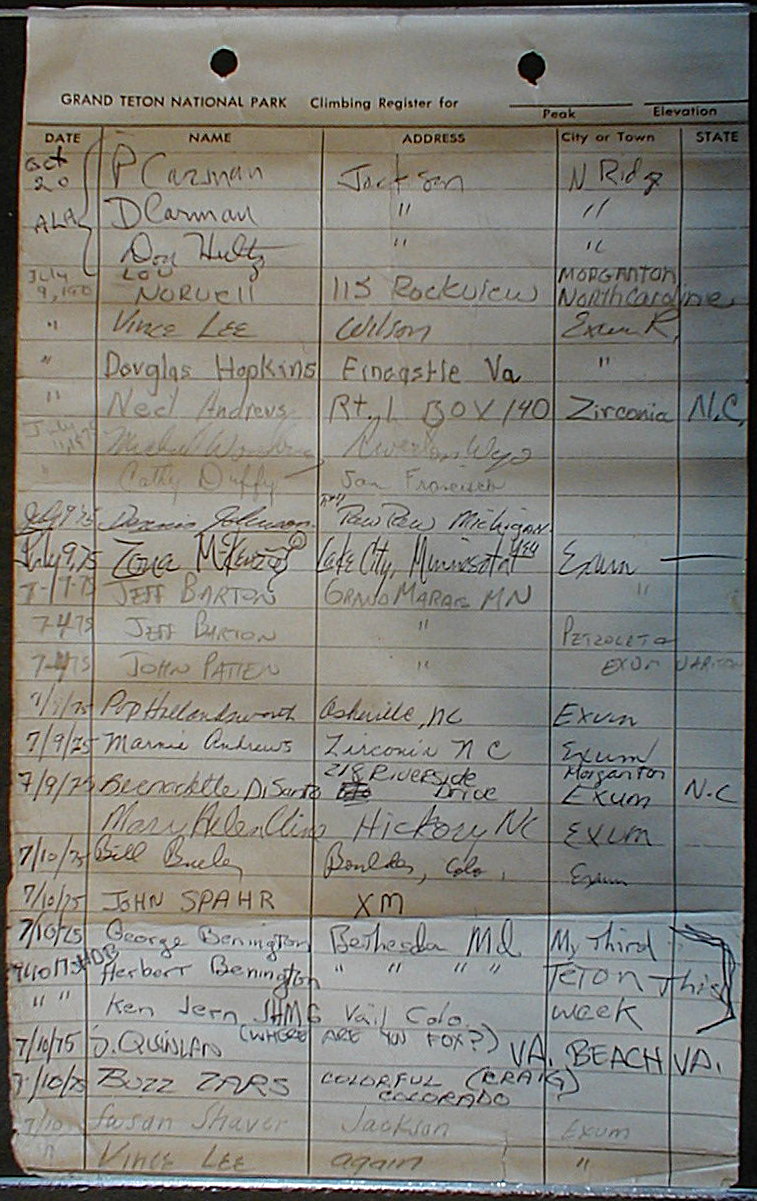 GRAND TETON NATIONAL PARK Climbing Register for
Peak Elevation
DATE NAME ADDRESS City or Town STATE
Oct 20 P Carman Jackson N Ridg
ALA D Carman " "
Don Hultz " "
July 9, LOU NORVEll 115 Rockview MORGANTON North
" Vince Lee Wilson Exum R.
" Douglas Hopkins Fincastle Va "
" Ned Andrews Rt. 1 BOX 140 Zirconia N.C.
July Michael Riverton Wyo
" Cathy Duffy San Francisco
July 9 75 Dennis Johnson Paw Paw Michigan
July 9, 75 Zona McKenzie Lake City, Minnesota Exum
75 JEFF BARTON GRAND MARAIS MN "
7-4-75 JEFF BARTON " PETZOLDT
75 JOHN PATTEN " EXUM
/75 Pop Hollandsworth Asheville, NC Exum
7/9/75 Marnie Andrews Zirconia N C Exum
7/9/75 Bernadette DiSanto 218 Riverside Drive Morganton Exum N.C
Mary Helen Cline Hickory NC EXUM
7/10/75 Bill Boulder, Colo. Exum
7/10/75 JOHN SPAHR XM
7/10/75 George Benington Bethesda Md My Third
7/10/75 HDB Herbert Benington " " " " TETON This
" " Ken Jern JHMG Vail Colo. week
7/10/75 J. QUINLAN (WHERE ARE YOU FOX?) VA. BEACH VA.
7/10/75 BUZZ ZARS COLORFUL (CRAIG) COLORADO
7/10 Susan Shaver Jackson Exum
" Vince Lee again "